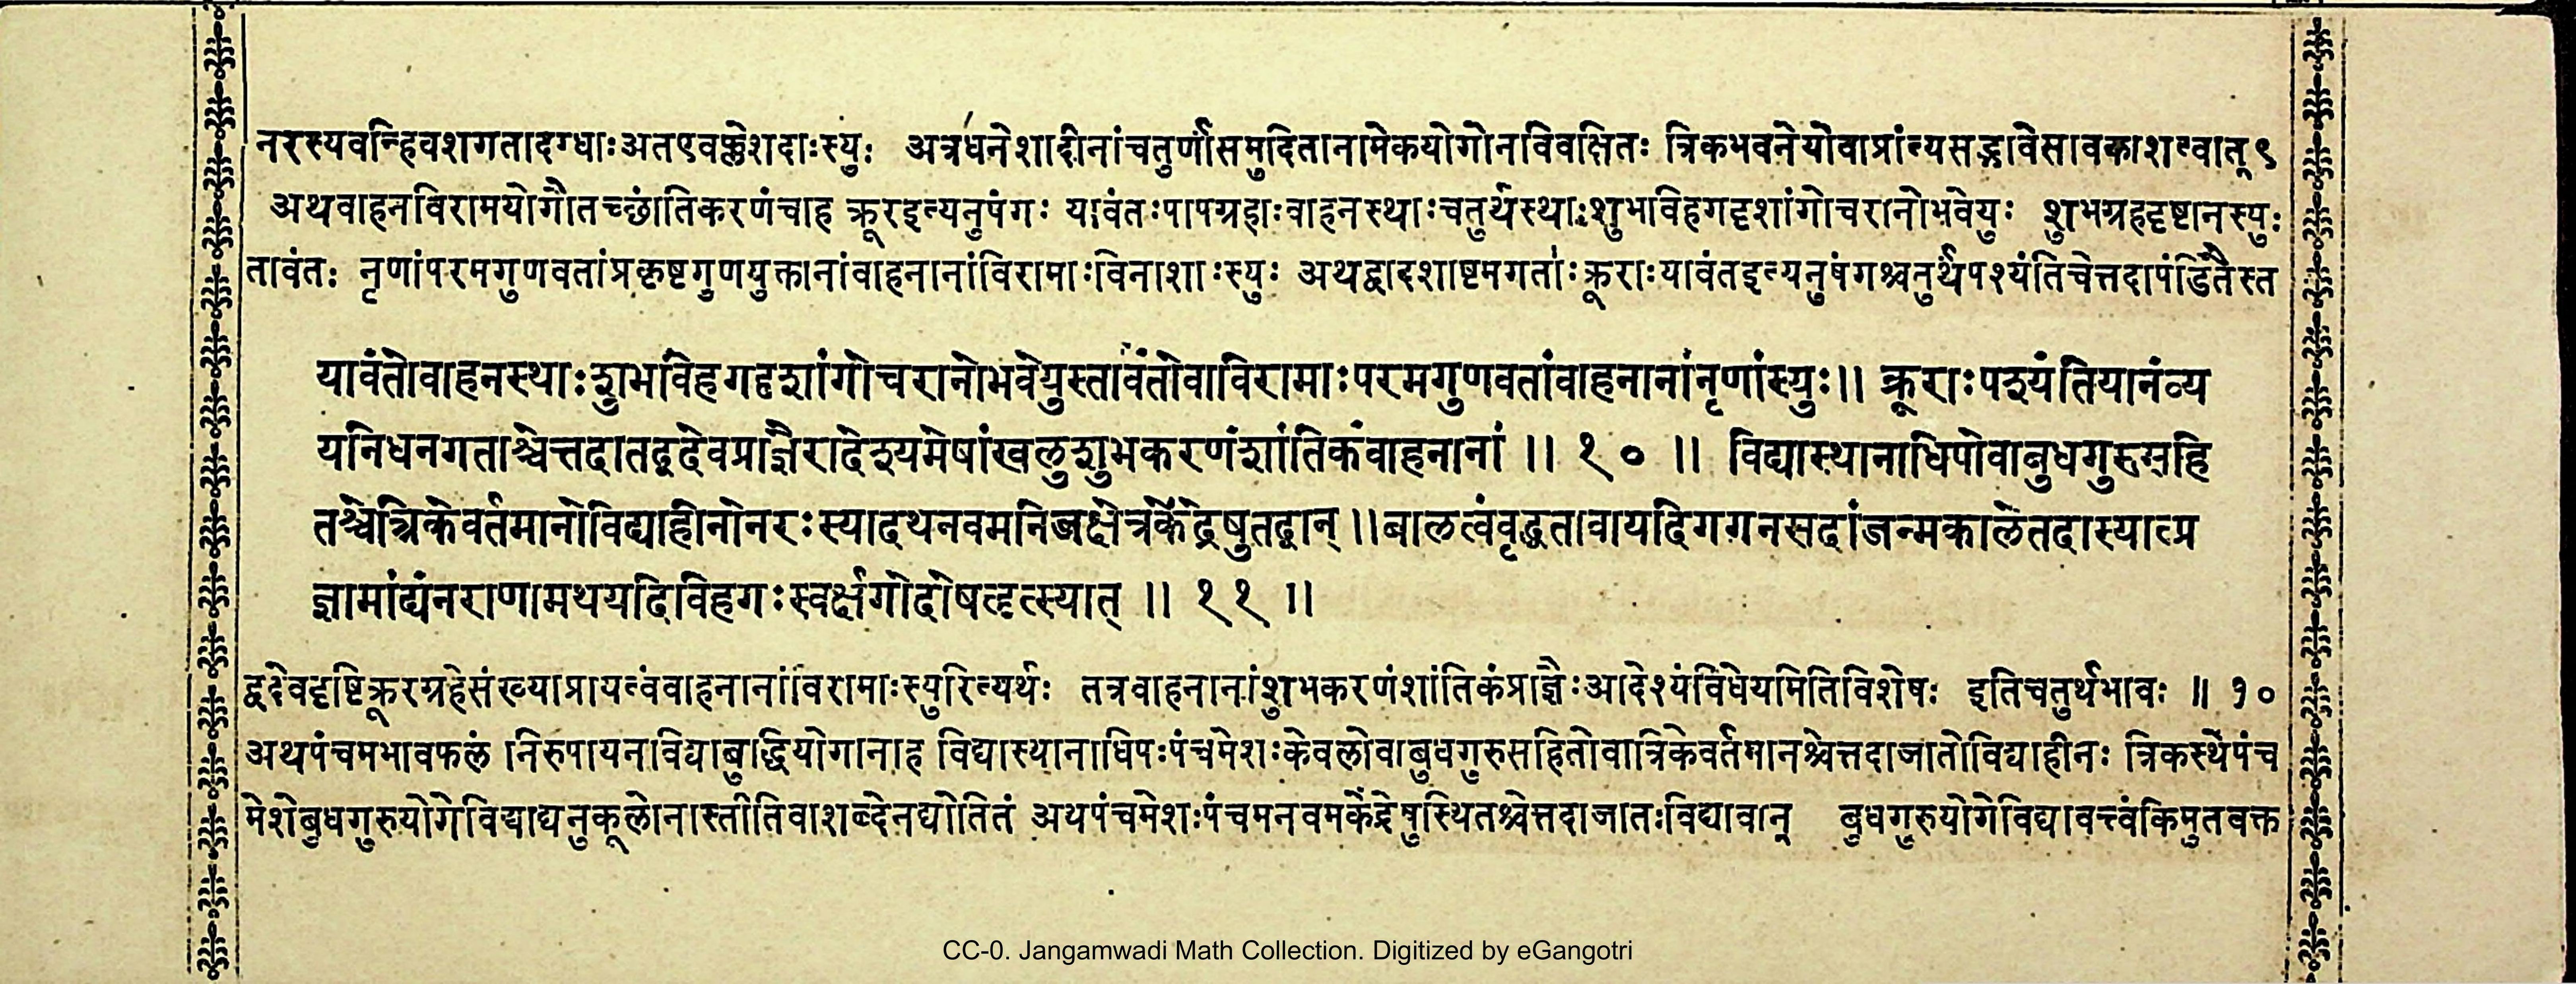 नरस्यवन्हिवशगतादग्धाःअतएवक्लेशदाःस्युः अत्रधनेशादीनांचतुर्णांसमुदितानामेकयोगोनविवक्षितः त्रिकभवनेयोवाप्रांत्यसद्भावेसावकाशत्वात् ९
अथवाहनविरामयोगौतच्छांतिकरणंचाह क्रूरइत्यनुपंगः यावंतःपापग्रहाःवाहनस्थाःचतुर्थस्थाःशुभाविहगदृशांगोचरानोभवेयुः शुभग्रहदृष्टानस्युः
तावंतः नृणांपरमगुणवतांप्रकृष्टगुणयुक्तानांवाहनानांविरामाःविनाशाःस्युः अथद्वादशाष्टमगताःक्रूराःयावंतइत्यनुषंगश्चतुर्थंपश्यंतिचेत्तदापंडितैस्त
यावंतोवाहनस्थाःशुभविहगदृशांगोचरानोभवेयुस्तावंतोवाविरामाःपरमगुणवतांवाहनानांनृणांस्युः॥ क्रूराःपश्यंतियानंव्य
यनिधनगताश्चेत्तदातद्वदेवप्राज्ञैरादेश्यमेषांखलुशुभकरणंशांतिकंवाहनानां ॥ १० ॥ विद्यास्थानाधिपोवाबुधगुरुसहि
तश्चेत्त्रिकेवर्तमानोविद्याहीनोनरःस्यादथनवमनिजक्षेत्रकेंद्रेषुतद्वान् ॥बालत्वंवृद्धतावायदिगगनसदांजन्मकालेतदास्यात्प्र
ज्ञामांद्यंनराणामथयदिविहगःस्वर्क्षगोदोषहृत्स्यात् ॥ ११ ॥
द्वदेवदृष्टिक्रूरग्रहेसंख्याप्रायत्वंवाहनानांविरामाःस्युरित्यर्थः तत्रवाहनानांशुभकरणंशांतिकंप्राज्ञैःआदेश्यंविधेयमितिविशेषः इतिचतुर्थभावः ॥ १०
अथपंचमभावफलं निरुपायनाविद्याबुद्धियोगानाह विद्यास्थानाधिपःपंचमेशःकेवलोवाबुधगुरुसहितोवात्रिकेवर्तमानश्चेत्तदाजातोविद्याहीनः त्रिकस्थेपंच
मेशेबुधगुरुयोगेविद्याद्यनुकूलोनास्तीतिवाशब्देनद्योतितं अथपंचमेशःपंचमनवमकेंद्रेषुस्थितश्चेत्तदाजातःविद्यावान् बुधगुरुयोगेविद्यावत्त्वंकिमुतवक्त
CC-0. Jangamwadi Math Collection. Digitized by eGangotri